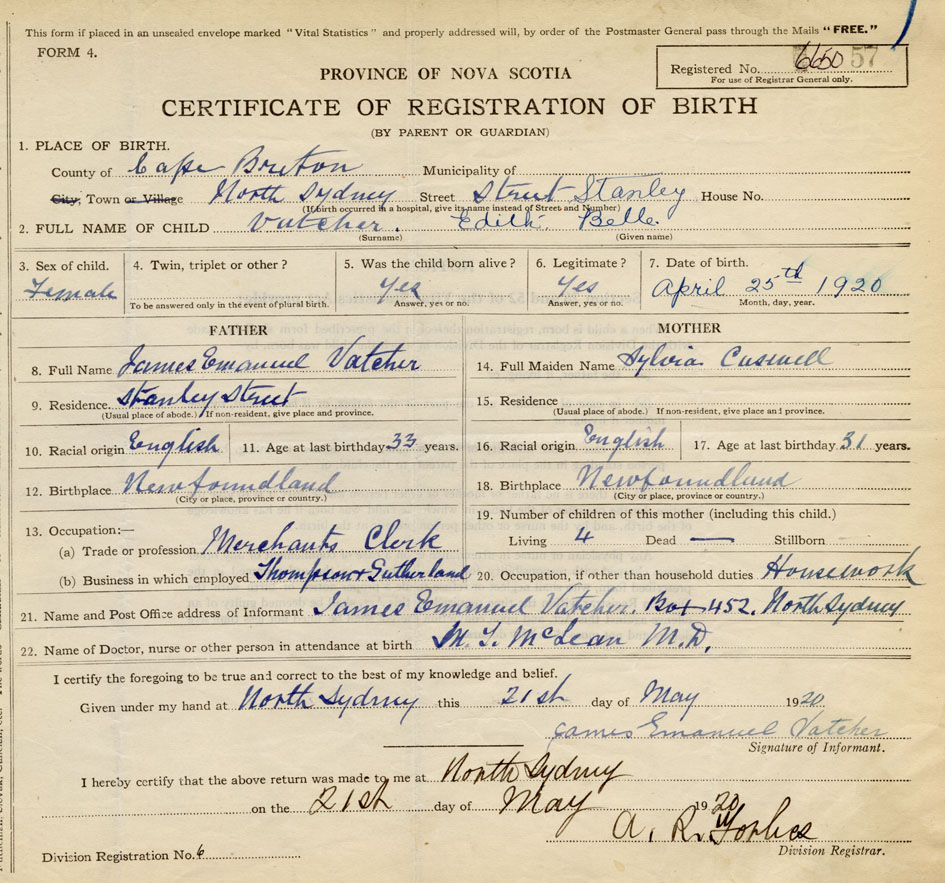 This form if placed in an unsealed envelope marked "Vital Statistics" and properly addressed will, by order of the Postmaster General pass through the Mails "FREE."
FORM 4.
Registered No. 6650 57
For use of Registrar General only.
PROVINCE OF NOVA SCOTIA
CERTIFICATE OF REGISTRATION OF BIRTH
(BY PARENT OR GUARDIAN)
1. PLACE OF BIRTH.
County of Cape Breton Municipality of
City, Town or Village North Sydney Street Street Stanley House No.
(If birth occurred in a hospital, give its name instead of Street and Number)
2. FULL NAME OF CHILD Vatcher. Edith Belle.
(Surname) (Given name)
3. Sex of child. 4. Twin, triplet or other? 5. Was the child born alive? 6. Legitimate? 7. Date of birth.
Female Yes Yes April 25th 1920
To be answered only in the event of plural birth. Answer, yes or no. Answer, yes or no. Month, day, year.
FATHER MOTHER
8. Full Name James Emanuel Vatcher 14. Full Maiden Name Sylvia Caswell
9. Residence. Stanley Street 15. Residence
(Usual place of abode.) If non-resident, give place and province. (Usual place of abode.) If non-resident, give place and province.
10. Racial origin English 11. Age at last birthday 33 years. 16. Racial origin English 17. Age at last birthday 31 years.
12. Birthplace Newfoundland 18. Birthplace Newfoundland
(City or place, province or country.) (City or place, province or country.)
13. Occupation:— 19. Number of children of this mother (including this child.)
(a) Trade or profession Merchants Clerk Living 4 Dead — Stillborn
(b) Business in which employed Thompson & Sutherland 20. Occupation, if other than household duties Housework
21. Name and Post Office address of Informant James Emanuel Vatcher. Box 452. North Sydney
22. Name of Doctor, nurse or other person in attendance at birth McLean M.D.
I certify the foregoing to be true and correct to the best of my knowledge and belief.
Given under my hand at North Sydney this 21st day of May 1920
James Emanuel Vatcher
Signature of Informant.
I hereby certify that the above return was made to me at North Sydney
on the 21st day of May 1920
A. R. Forbes
Division Registrar.
Division Registration No. 6